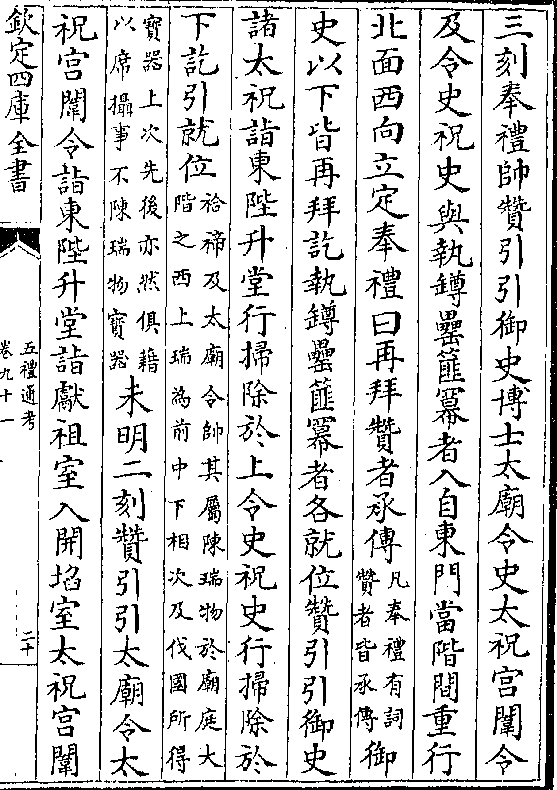 三刻奉禮帥贊引引御史博士太廟令史太祝宫闈令
及令史祝史與執罇罍篚冪者入自東門當階間重行
北面西向立定奉禮曰再拜贊者承傳凡奉禮有詞贊者皆承傳御
史以下皆再拜訖執罇罍篚冪者各就位贊引引御史
諸太祝詣東陛升堂行掃除於上令史祝史行掃除於
下訖引就位祫禘及太廟令帥其屬陳瑞物於廟庭大階之西上瑞為前中下相次及伐國所得
寳器上次先後亦然俱藉以席攝事不陳瑞物寳器未明二刻贊引引太廟令太
祝宫闈令詣東陛升堂詣獻祖室入開埳室太祝宫闈
欽定四庫全書
五禮通考
卷九十一
二十